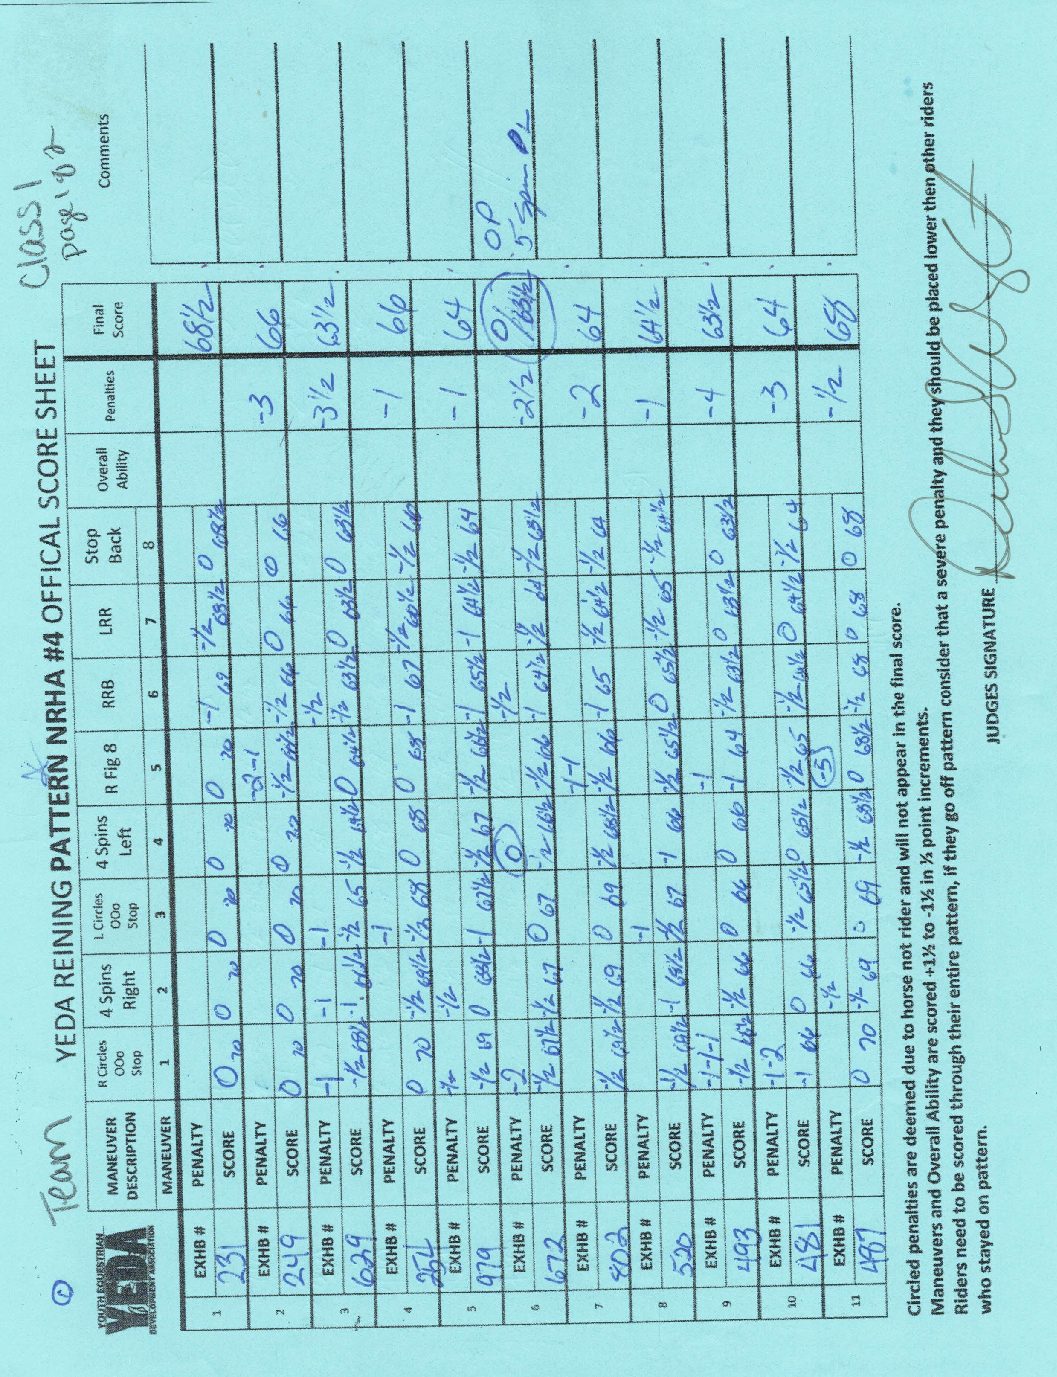 Class 1
page 1 of 2
Team
YEDA REINING PATTERN NRHA #4 OFFICAL SCORE SHEET
YOUTH EQUESTRIAN
YEDA
DEVELOPMENT ASSOCIATION
MANEUVER DESCRIPTION R Circles OOo Stop 4 Spins Right L Circles OOo Stop 4 Spins Left R Fig 8 RRB LRR Stop Back Overall Ability Penalties Final Score Comments
MANEUVER 1 2 3 4 5 6 7 8
1 EXHB # PENALTY
231 SCORE 0 70 0 70 0 70 0 70 0 70 -1 69 -½ 68½ 0 68½ 68½
2 EXHB # PENALTY -2 -1 -3
249 SCORE 0 70 0 70 0 70 0 70 -½ 66½ -½ 66 0 66 0 66 66
3 EXHB # PENALTY -1 -1 -1 -½ -3½
629 SCORE -½ 68½ -1 66½ -½ 65 -½ 64½ 0 64½ -½ 63½ 0 63½ 0 63½ 63½
4 EXHB # PENALTY -1 -1
254 SCORE 0 70 -½ 69½ -½ 68 0 68 0 68 -1 67 -½ 66½ -½ 66 66
5 EXHB # PENALTY -½ -½ -1
979 SCORE -½ 69 0 68½ -1 67½ -½ 67 -½ 66½ -1 65½ -1 64½ -½ 64 64
6 EXHB # PENALTY -2 0 -½ -2½ OP
672 SCORE -½ 67½ -½ 67 0 67 -½ 66½ -½ 66 -1 64½ -½ 64 -½ 63½ 0/63½ 5 Spin L
7 EXHB # PENALTY -1 -1 -2
802 SCORE -½ 69½ -½ 69 0 69 -½ 68½ -½ 66 -1 65 -½ 64½ -½ 64 64
8 EXHB # PENALTY -1 -1
520 SCORE -½ 69½ -1 68½ -½ 67 -1 66 -½ 65½ 0 65½ -½ 65 -½ 64½ 64½
9 EXHB # PENALTY -1-1-1 -1 -4
493 SCORE -½ 66½ -½ 66 0 66 0 66 -1 64 -½ 63½ 0 63½ 0 63½ 63½
10 EXHB # PENALTY -1-2 -3
481 SCORE -1 66 0 66 -½ 65½ 0 65½ -½ 65 -½ 64½ 0 64½ -½ 64 64
11 EXHB # PENALTY -½ (-5) -½
487 SCORE 0 70 -½ 69 0 69 -½ 68½ 0 68½ -½ 68 0 68 0 68 68
Circled penalties are deemed due to horse not rider and will not appear in the final score.
Maneuvers and Overall Ability are scored +1½ to -1½ in ½ point increments.
Riders need to be scored through their entire pattern, if they go off pattern consider that a severe penalty and they should be placed lower then other riders
who stayed on pattern.
JUDGES SIGNATURE